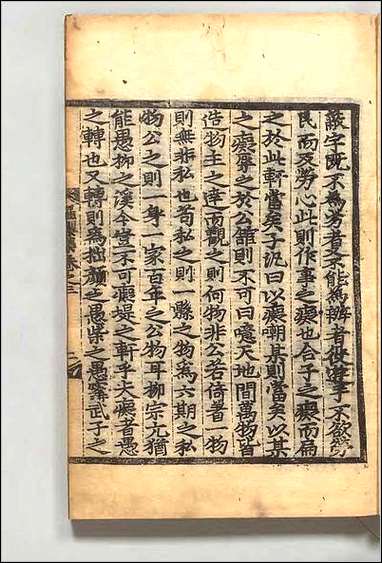 字既不為勞者不能為辦者役遊手不飲勞
民而及勞心此則作事之癡也台子之癡而扁
之於此軒當矣子氾曰以癡嘲某則當矣以某
之癡辱之於公館則不可曰噫天地間萬物皆
造物主之達而觀之則何物非公若倚著一物
則無非私也苟私之則一縣之物為六期之私
物公之則一身一家百年之公物耳柳宗元猶
能愚柳之溪今豈不可癡之軒乎夫癡者愚
之轉也又轉則為拙顔之愚柴之愚甯武子之